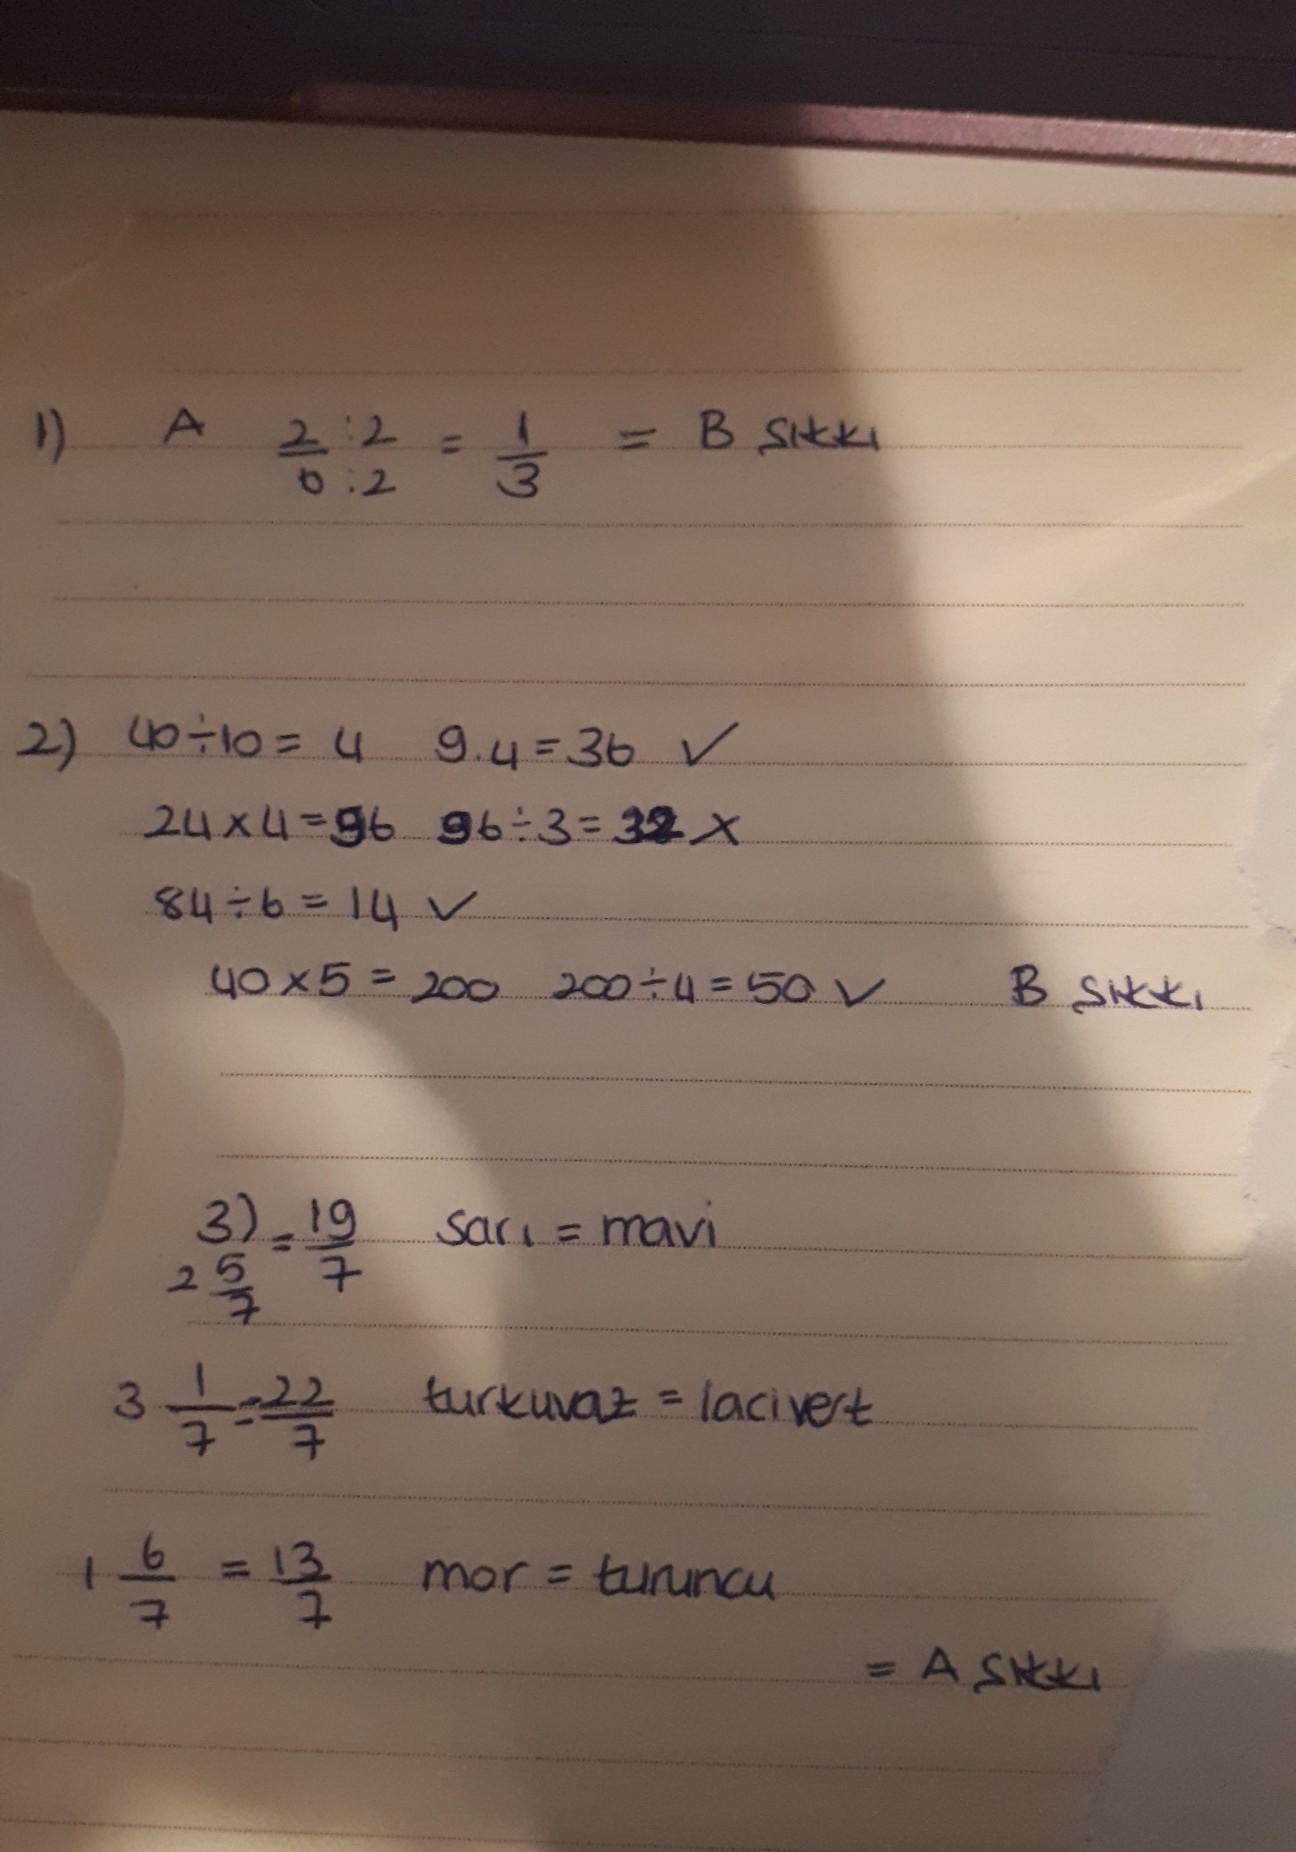 1) A 2/6 :2/:2 = 1/3 = B şıkkı
2) 40÷10 = 4 9.4=36 ✓
24x4=96 96÷3=32 x
84÷6=14 ✓
40x5=200 200÷4=50 ✓ B şıkkı
3) 2 5/7 = 19/7 sarı = mavi
3 1/7 = 22/7 turkuvaz = lacivert
1 6/7 = 13/7 mor = turuncu
= A şıkkı